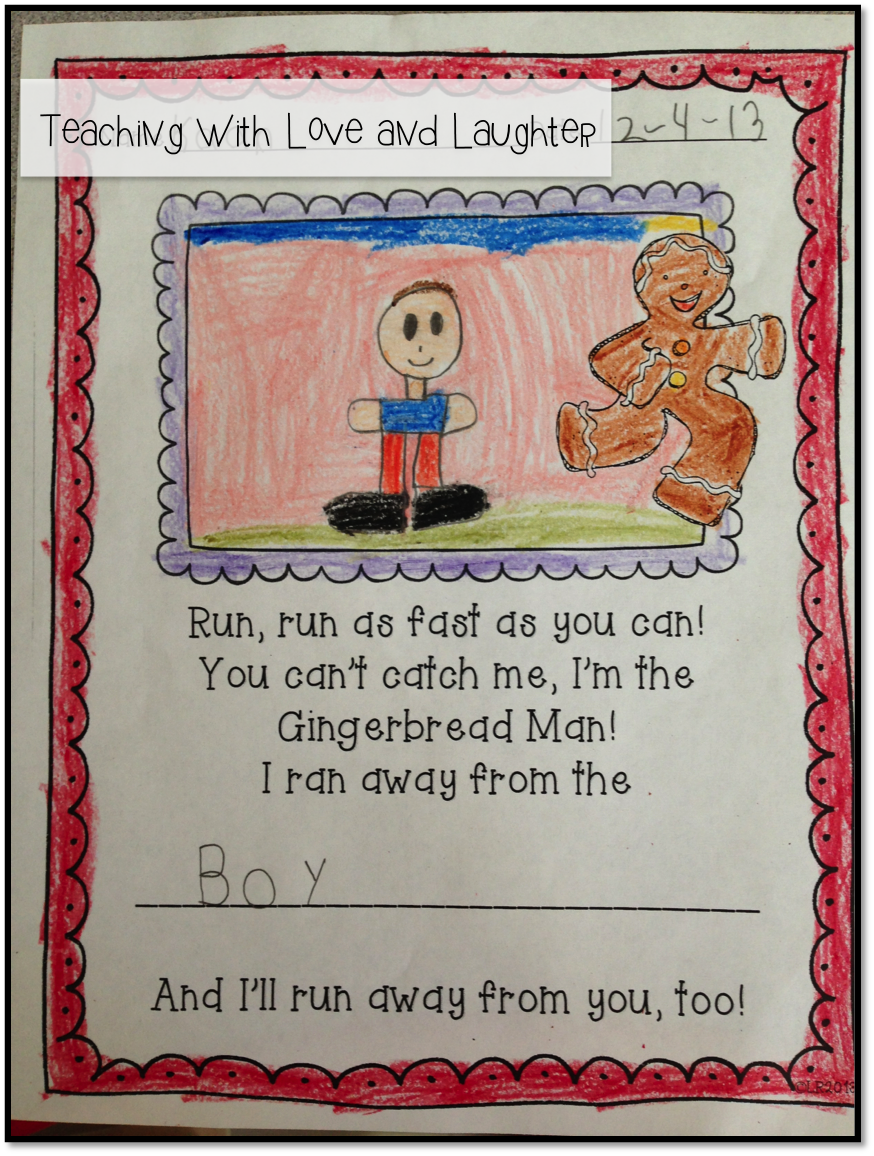 Teaching with Love and Laughter
12-4-13
Run, run as fast as you can!
You can't catch me, I'm the
Gingerbread Man!
I ran away from the
Boy
And I'll run away from you, too!
©LP2013